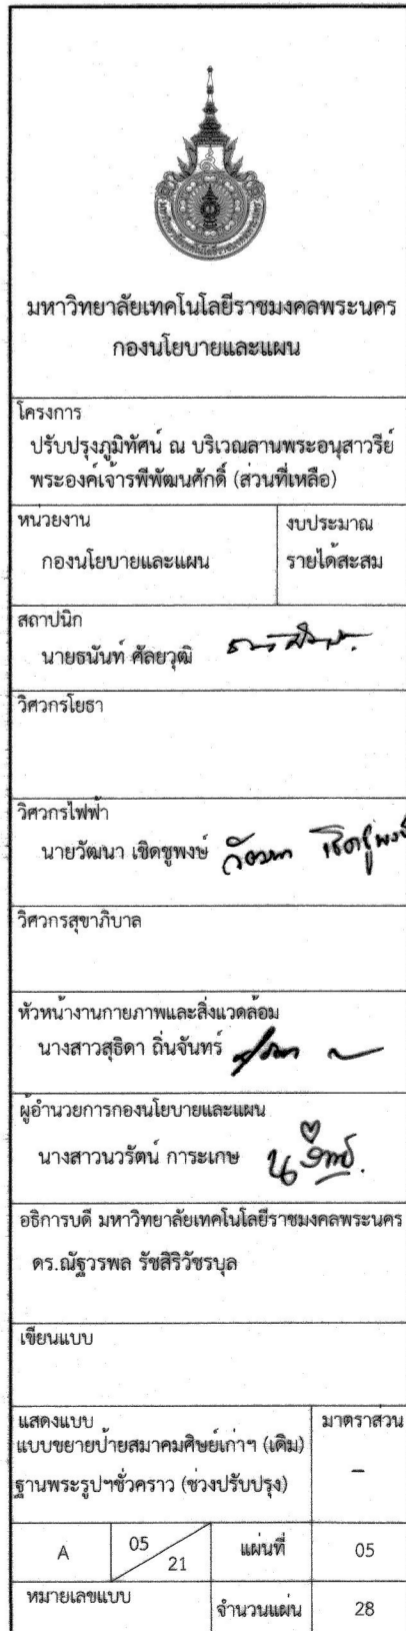 มหาวิทยาลัยเทคโนโลยีราชมงคลพระนคร
กองนโยบายและแผน
โครงการ
ปรับปรุงภูมิทัศน์ ณ บริเวณลานพระอนุสาวรีย์
พระองค์เจ้ารพีพัฒนศักดิ์ (ส่วนที่เหลือ)
หน่วยงาน
กองนโยบายและแผน
งบประมาณ
รายได้สะสม
สถาปนิก
นายธนันท์ ศัลยวุฒิ
วิศวกรโยธา
วิศวกรไฟฟ้า
นายวัฒนา เชิดชูพงษ์
วัฒนา เชิดชูพงษ์
วิศวกรสุขาภิบาล
หัวหน้างานกายภาพและสิ่งแวดล้อม
นางสาวสุธิดา ถิ่นจันทร์
ผู้อำนวยการกองนโยบายและแผน
นางสาวนวรัตน์ การะเกษ
อธิการบดี มหาวิทยาลัยเทคโนโลยีราชมงคลพระนคร
ดร.ณัฐวรพล รัชสิริวัชรบุล
เขียนแบบ
แสดงแบบ
แบบขยายป้ายสมาคมศิษย์เก่าฯ (เดิม)
ฐานพระรูปฯชั่วคราว (ช่วงปรับปรุง)
มาตราส่วน
-
A 05/21 แผ่นที่ 05
หมายเลขแบบ จำนวนแผ่น 28